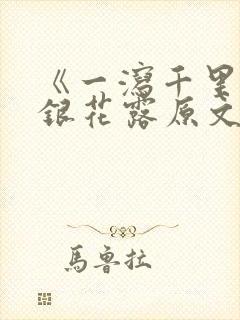 《一瀉千里
銀花露原文
馬魯拉